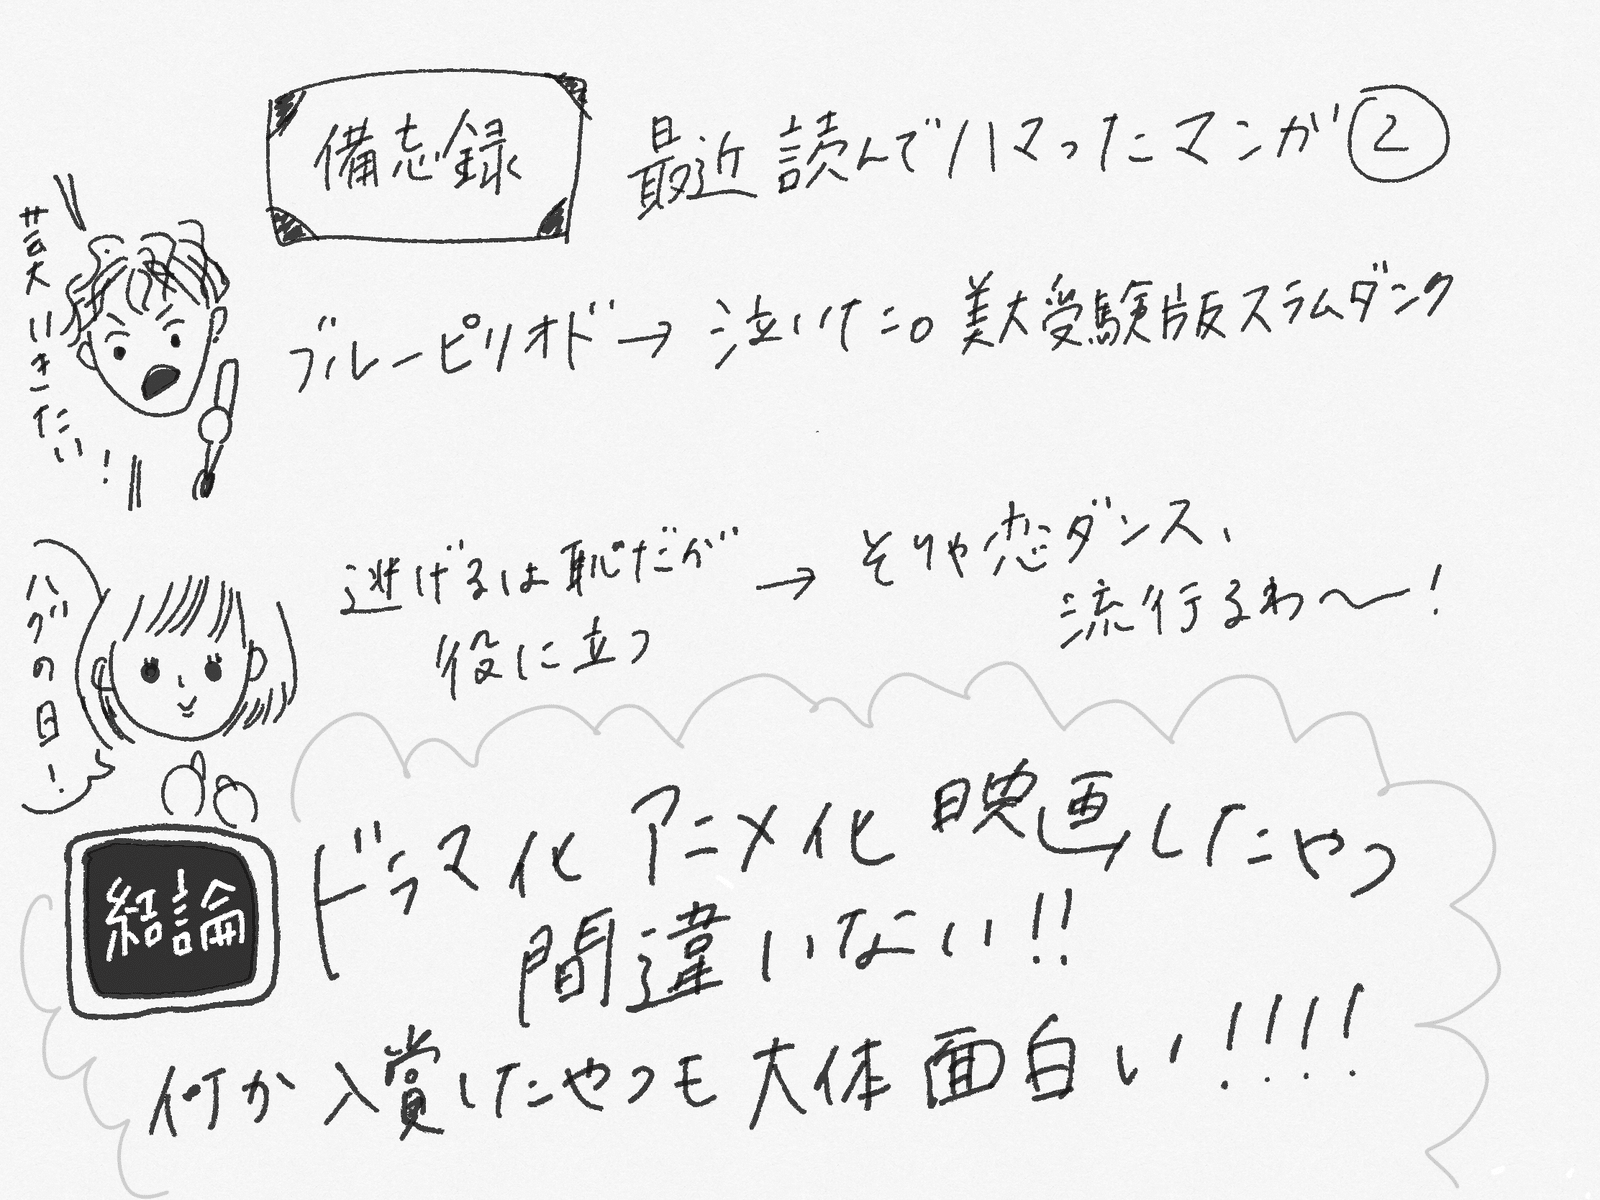 備忘録
最近読んでハマったマンガ②
芸大いきたい!
ブルーピリオド→泣いた。美大受験版スラムダンク
ハグの日!
逃げるは恥だが
役に立つ
→そりゃ恋ダンス、
流行るわ〜!
結論
ドラマ化アニメ化映画したやつ
間違いない!!
何か入賞したやつも大体面白い!!!!